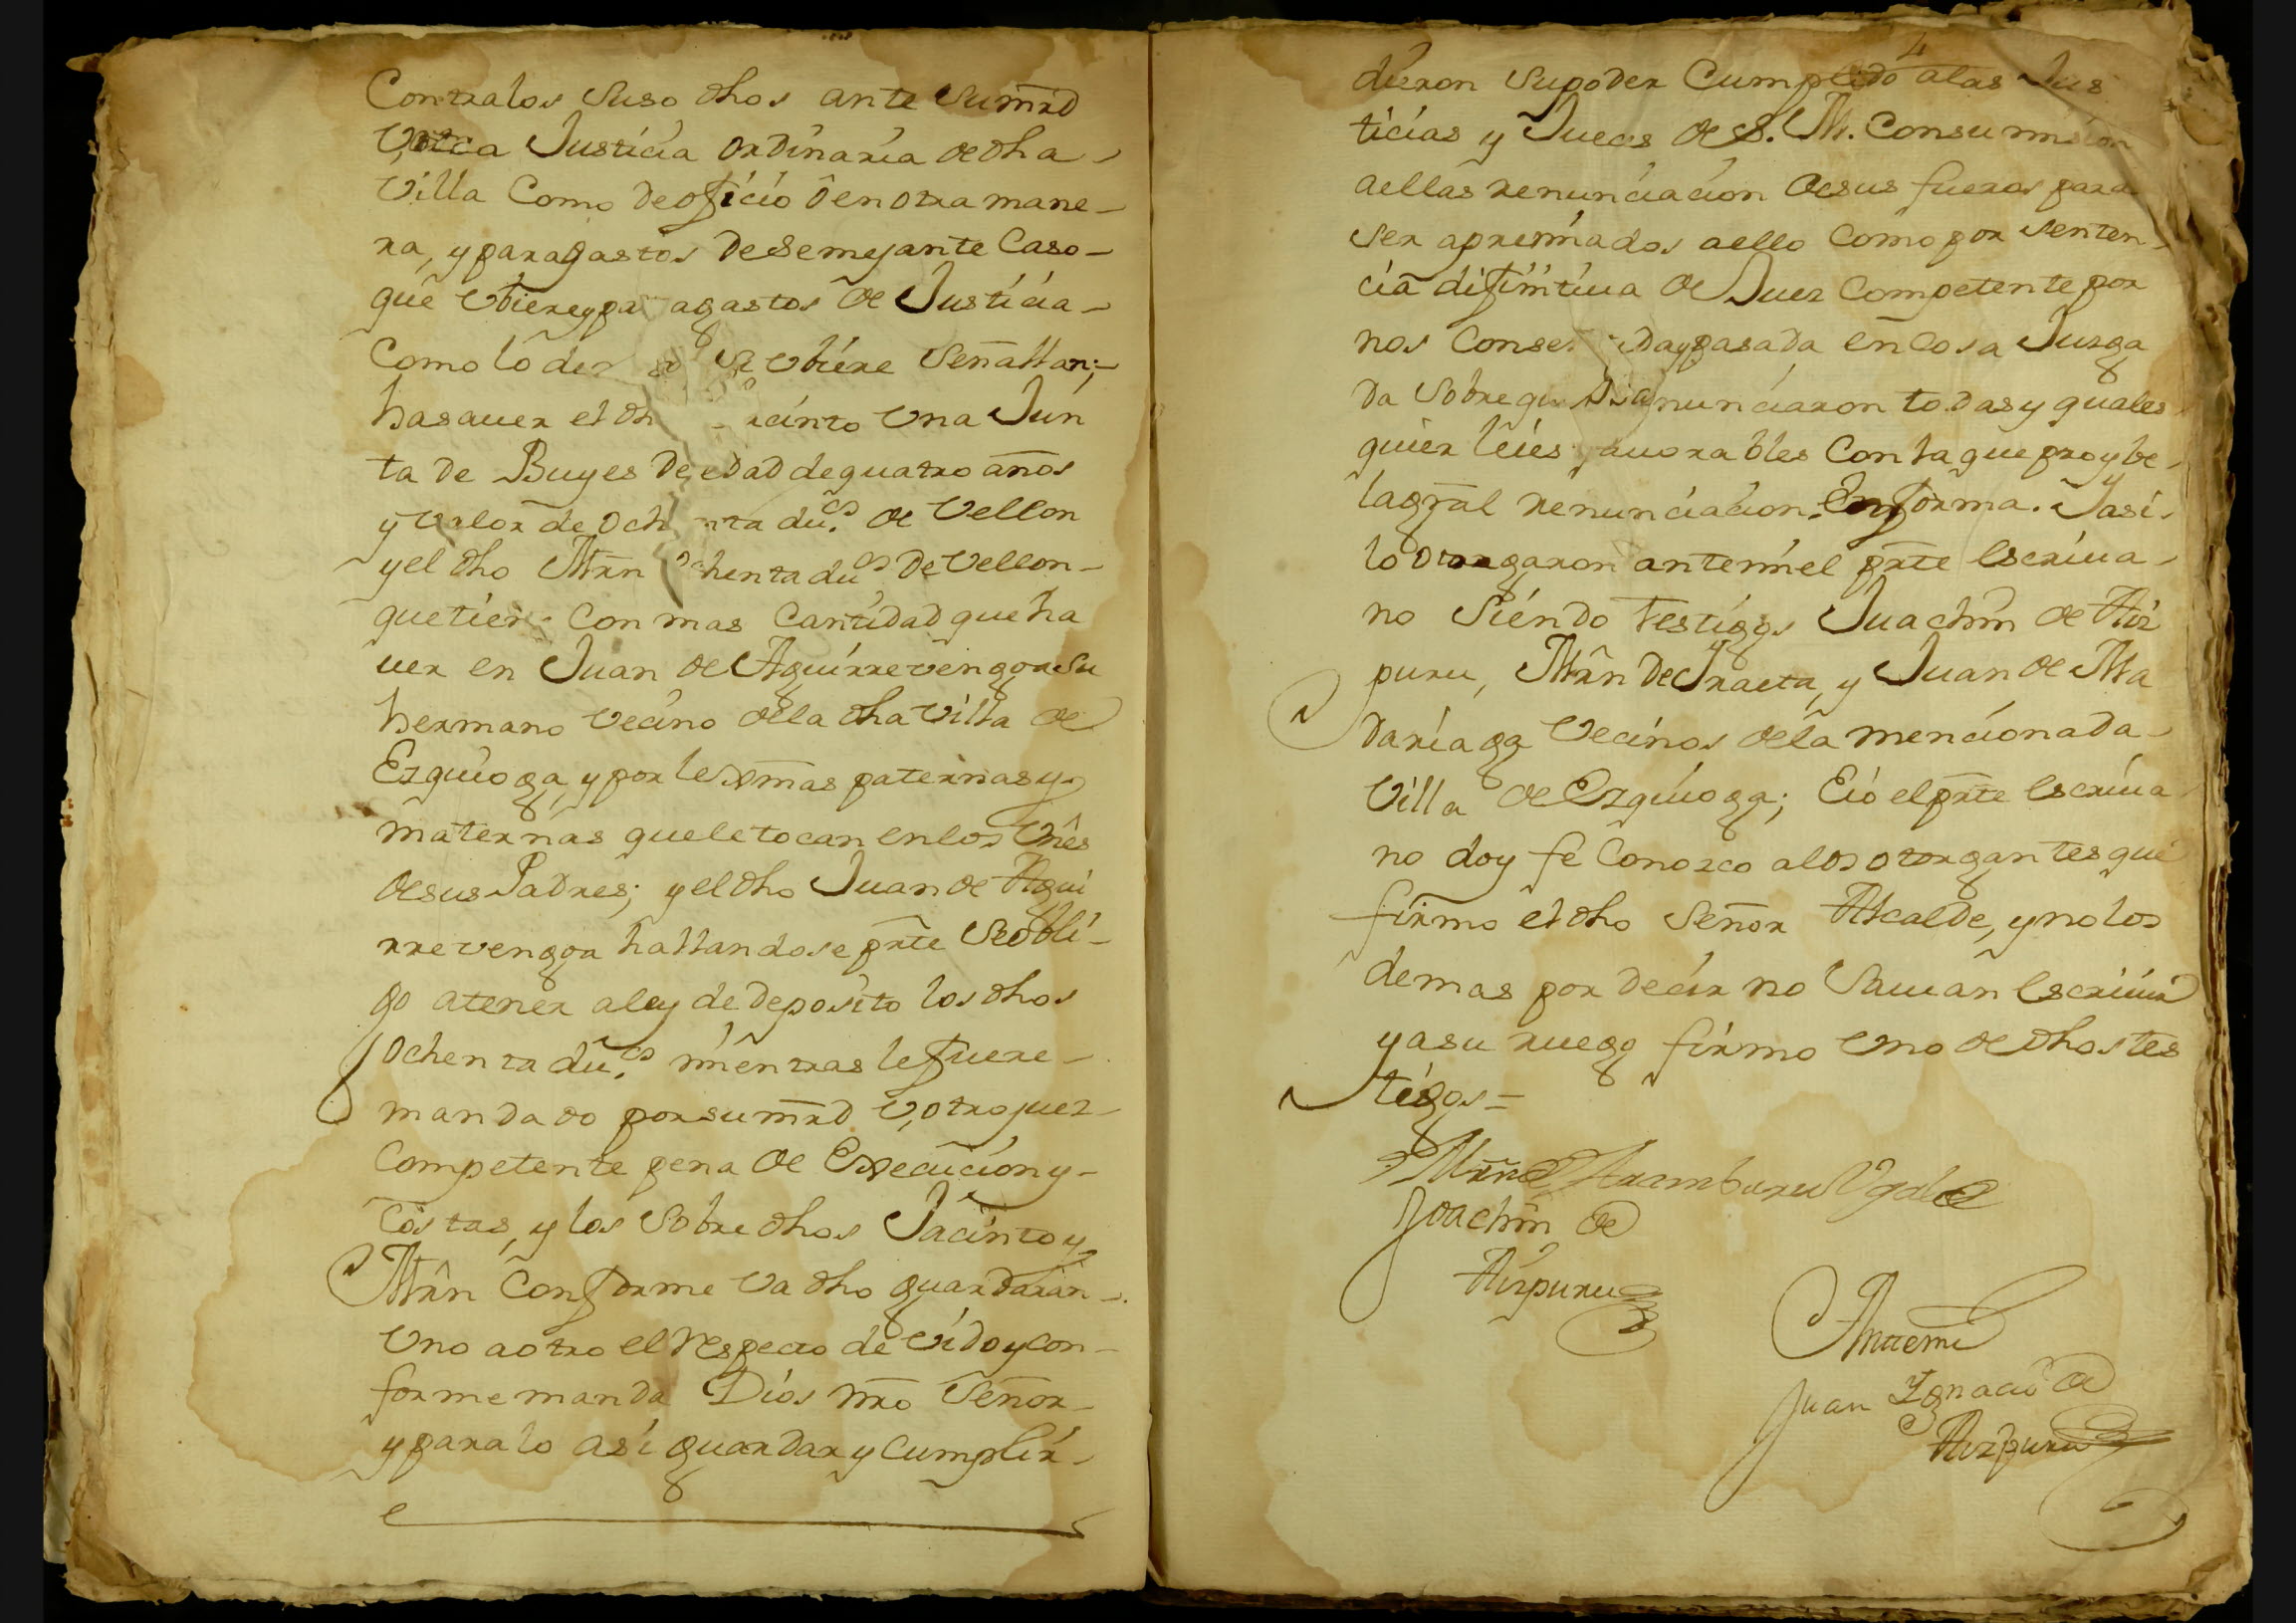 Contra los suso dhos ante su mrd
V otra Justicia ordinaria de dha
Villa Como de oficio ô en otra mane-
ra, y para gastos de semejante Caso-
que Vbiere y pa a gastos de Justicia-
Como lo de se Vbiere Señallan;-
ha saver el dh acinto Vna Jun
ta de Buyes de edad de quatro años
y valor de och nta du.os de Vellon
y el dho Mrn ochenta du.os de Vellon-
que tiene Con mas Cantidad que ha
uer en Juan de Aguirrevengoa su
hermano Vecino de la dha Villa de
Ezquioga, y por lexmas paternas y
maternas que le tocan en los Vnês
de sus Padres; y el dho Juan de Agui
rrevengoa hallandose prte se obli-
go a tener a ley de deposito los dhos
Ochenta du.os mientras le fuere-
mandado por su mrd V, otro juez-
Competente pena de Execucion y-
Costas, y los sobre dhos Jacinto y
Mrn Conforme va dho guardaran-
Vno a otro el respecto de vido y con-
forme manda Dios nro Señor-
y para lo asi guardar y cumplir-
4
dieron su poder Cumplido a las Jus
ticias y Jueces de S. M. Con sumision
a ellas renunciacion de sus fueros para
ser apremiados a ello Como por senten-
cia difinitiua de Juez Competente por
nos Conse daypasada en Cosa Juzga
da sobre qu nunciaron todas y quales
quier leies auorables Con la que proybe-
la gral renunciacion. En forma. Y asi-
lo otorgaron ante mi el prte escriua-
no siendo testigos Juachin de Aiz
puru, Mrn de Iraeta, y Juan de Ma
dariaga Vecinos de la mencionada-
Villa de Ezquioga; E io el prte escriua
no doy fe Conozco a los otorgantes que
firmo el dho Señor Alcalde, y no los
demas por decir no sauian escriuir
y a su ruego firmo Vno de dhos tes
tigos=
Mrn de Aramburu Vgalde
Joachin de
Aizpuru
Ante mi
Juan Ygnacio de
Aizpuru